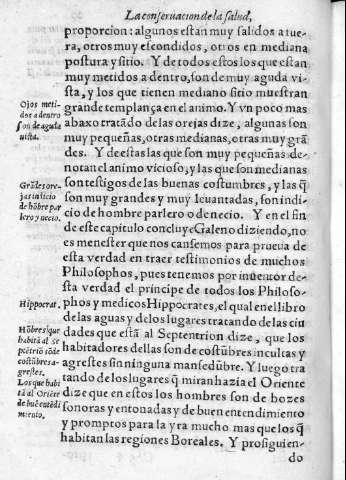 La conseruacion de la salud,
proporcion: algunos estan muy salidos a fue-
ra, otros muy escondidos, otros en mediana
postura y sitio. Y de todos estos los que estan
muy metidos a dentro, son de muy aguda vi-
sta, y los que tienen mediano sitio muestran
grande templança en el animo. Y vn poco mas
abaxo tratãdo de las orejas dize, algunas son
muy pequeñas, otras medianas, otras muy grã
des. Y de estas las que son muy pequeñas de-
notan el animo vicioso, y las que son medianas
son testigos de las buenas costumbres, y las q̃
son muy grandes y muy leuantadas, son indi-
cio de hombre parlero o de necio. Y en el fin
de este capitulo concluye Galeno diziendo, no
es menester que nos cansemos para prueua de
esta verdad en traer testimonios de muchos
Philosophos, pues tenemos por inuentor de-
sta verdad el principe de todos los Philoso-
phos y medicos Hippocrates, el qual en el libro
de las aguas y de los lugares tratando de las ciu
dades que estã al Septentrion dize, que los
habitadores dellas son de costũbres incultas y
agrestes sin ninguna mansedũbre. Y luego tra
tando de los lugares q̃ miran hazia el Oriente
dize que en estos los hombres son de bozes
sonoras y entonadas y de buen entendimiento
y promptos para la yra mucho mas que los q̃
habitan las regiones Boreales. Y prosiguien-
do
Ojos meti-
dos a dentro
son de aguda
vista.
Grãdes ore-
jas indicio
de hõbre par
lero y necio.
Hippocrat.
Hõbres que
habitã al Se
ptẽtriõ sõ de
costũbres a-
grestes.
Los que habi
tã al Oriẽte
de buẽ entẽdi
miento.